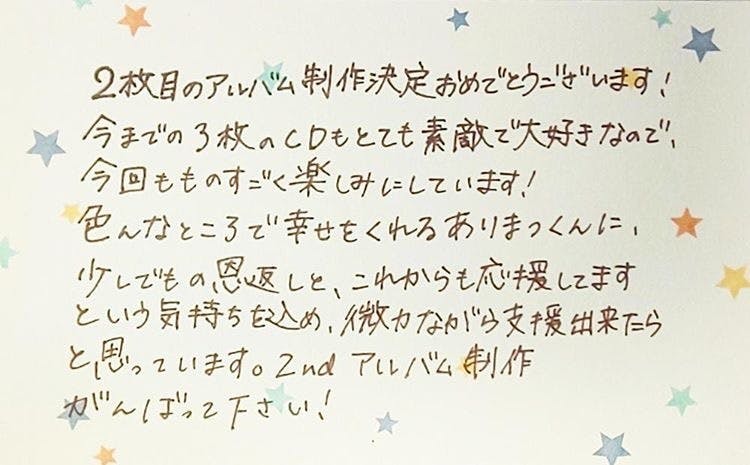 2枚目のアルバム制作決定おめでとうございます!
今までの3枚のCDもとても素敵で大好きなので、
今回もものすごく楽しみにしています!
色んなところで幸せをくれるありまっくんに、
少しでもの恩返しと、これからも応援してます
という気持ちを込め、微力ながら支援出来たら
と思っています。2nd アルバム制作
がんばって下さい!